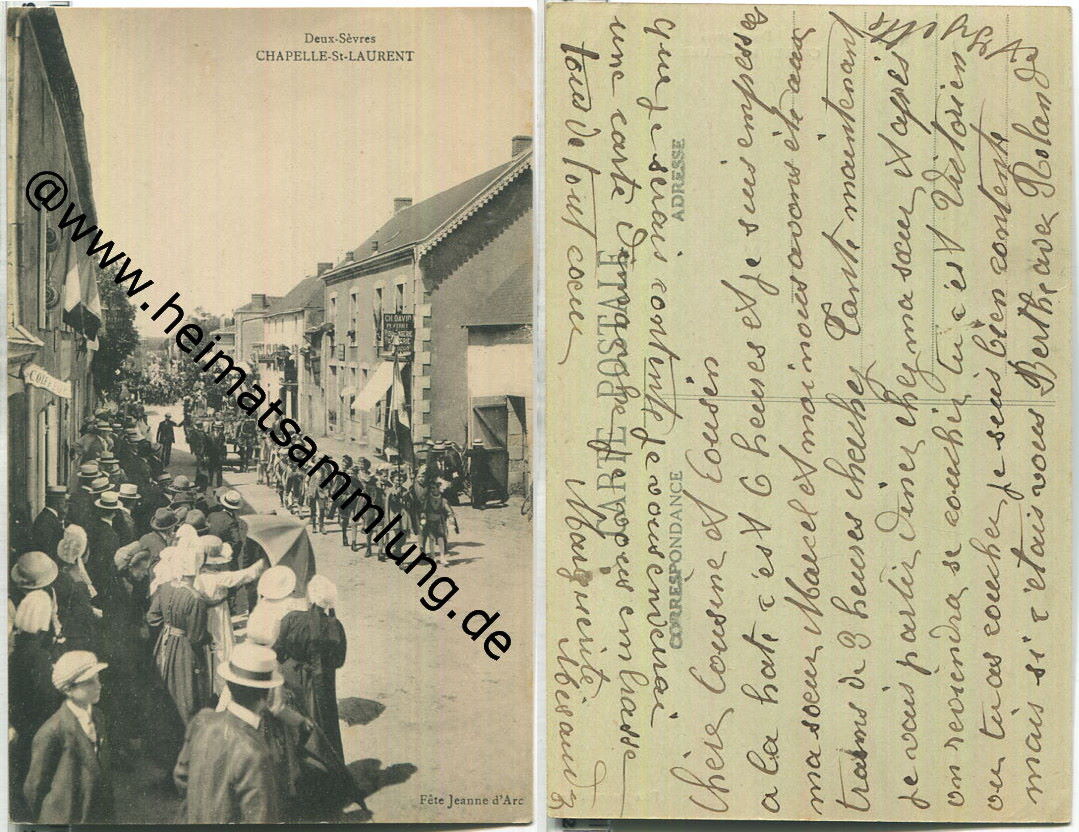 Deux-Sèvres
CHAPELLE-St-LAURENT
CH. DAVID
Fête Jeanne d'Arc
@www.heimatsammlung.de
CARTE POSTALE
CORRESPONDANCE
ADRESSE
Chère Cousine et Cousin
a la hate c'est 6 heures et je suis empressée
ma soeur Marcel et moi nous avons été aux
trains de 3 heures cherher Tante maintenant
je vais partir diner chez ma soeur et apres
on reviendra se coucher tu c'est Victorien
ou tu as coucher je suis bien contente
mais si c'étais vous Berthe avec Roland
que je serais contente je vous enverrai
une carte Dimanche je vous embrasse
tous de tout coeur
Marguerite